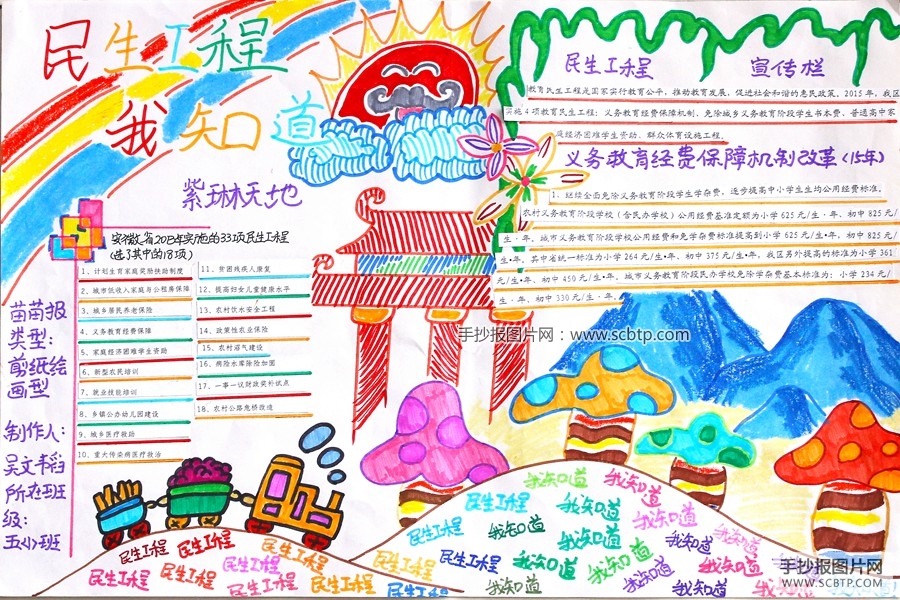 民生工程
我知道
紫琳天地
安徽省2013年实施的33项民生工程
(选了其中的18项)
1、计划生育家庭奖励扶助制度
2、城市低收入家庭与公租房保障
3、城乡居民养老保险
4、义务教育经费保障
5、家庭经济困难学生资助
6、新型农民培训
7、就业技能培训
8、乡镇公办幼儿园建设
9、城乡医疗救助
10、重大传染病医疗救治
11、贫困残疾人康复
12、提高妇女儿童健康水平
13、农村饮水安全工程
14、政策性农业保险
15、农村沼气建设
16、病险水库除险加固
17、一事一议财政奖补试点
18、农村公路危桥改造
苗苗报
类型:
剪纸绘
画型
制作人:
吴文韬
所在班
级:
五(1)班
民生工程 宣传栏
教育民生工程是国家实行教育公平，推动教育发展，促进社会和谐的惠民政策。2015年，我区
实施4项教育民生工程：义务教育经费保障机制、免除城乡义务教育阶段学生书本费、普通高中家
庭经济困难学生资助、群众体育设施工程。
义务教育经费保障机制改革(15年)
1、继续全面免除义务教育阶段学生学杂费，逐步提高中小学生生均公用经费标准。
农村义务教育阶段学校（含民办学校）公用经费基准定额为小学625元/生·年、初中825元/
生·年。城市义务教育阶段学校公用经费和免学杂费标准提高到小学625元/生·年、初中825元/
生•年。其中省统一标准为小学264元/生•年、初中375元/生•年，我区另外提高的标准为小学361
元/生·年、初中450元/生·年。城市义务教育阶段民办学校免除学杂费基本标准为：小学234元/
生·年、初中330元/生·年。
手抄报图片网：www.scbtp.com
我知道 我知道
民生工程 我知道 我知道
民生工程 我知道 我知道 我知道 我知道
民生工程 民生工程 民生工程 民生工程 民生工程 我知道 我知道 我知道
民生工程 民生工程 民生工程 民生工程 民生工程 我知道 我知道 我知道 我知道
手抄报图片网
WWW.SCBTP.COM